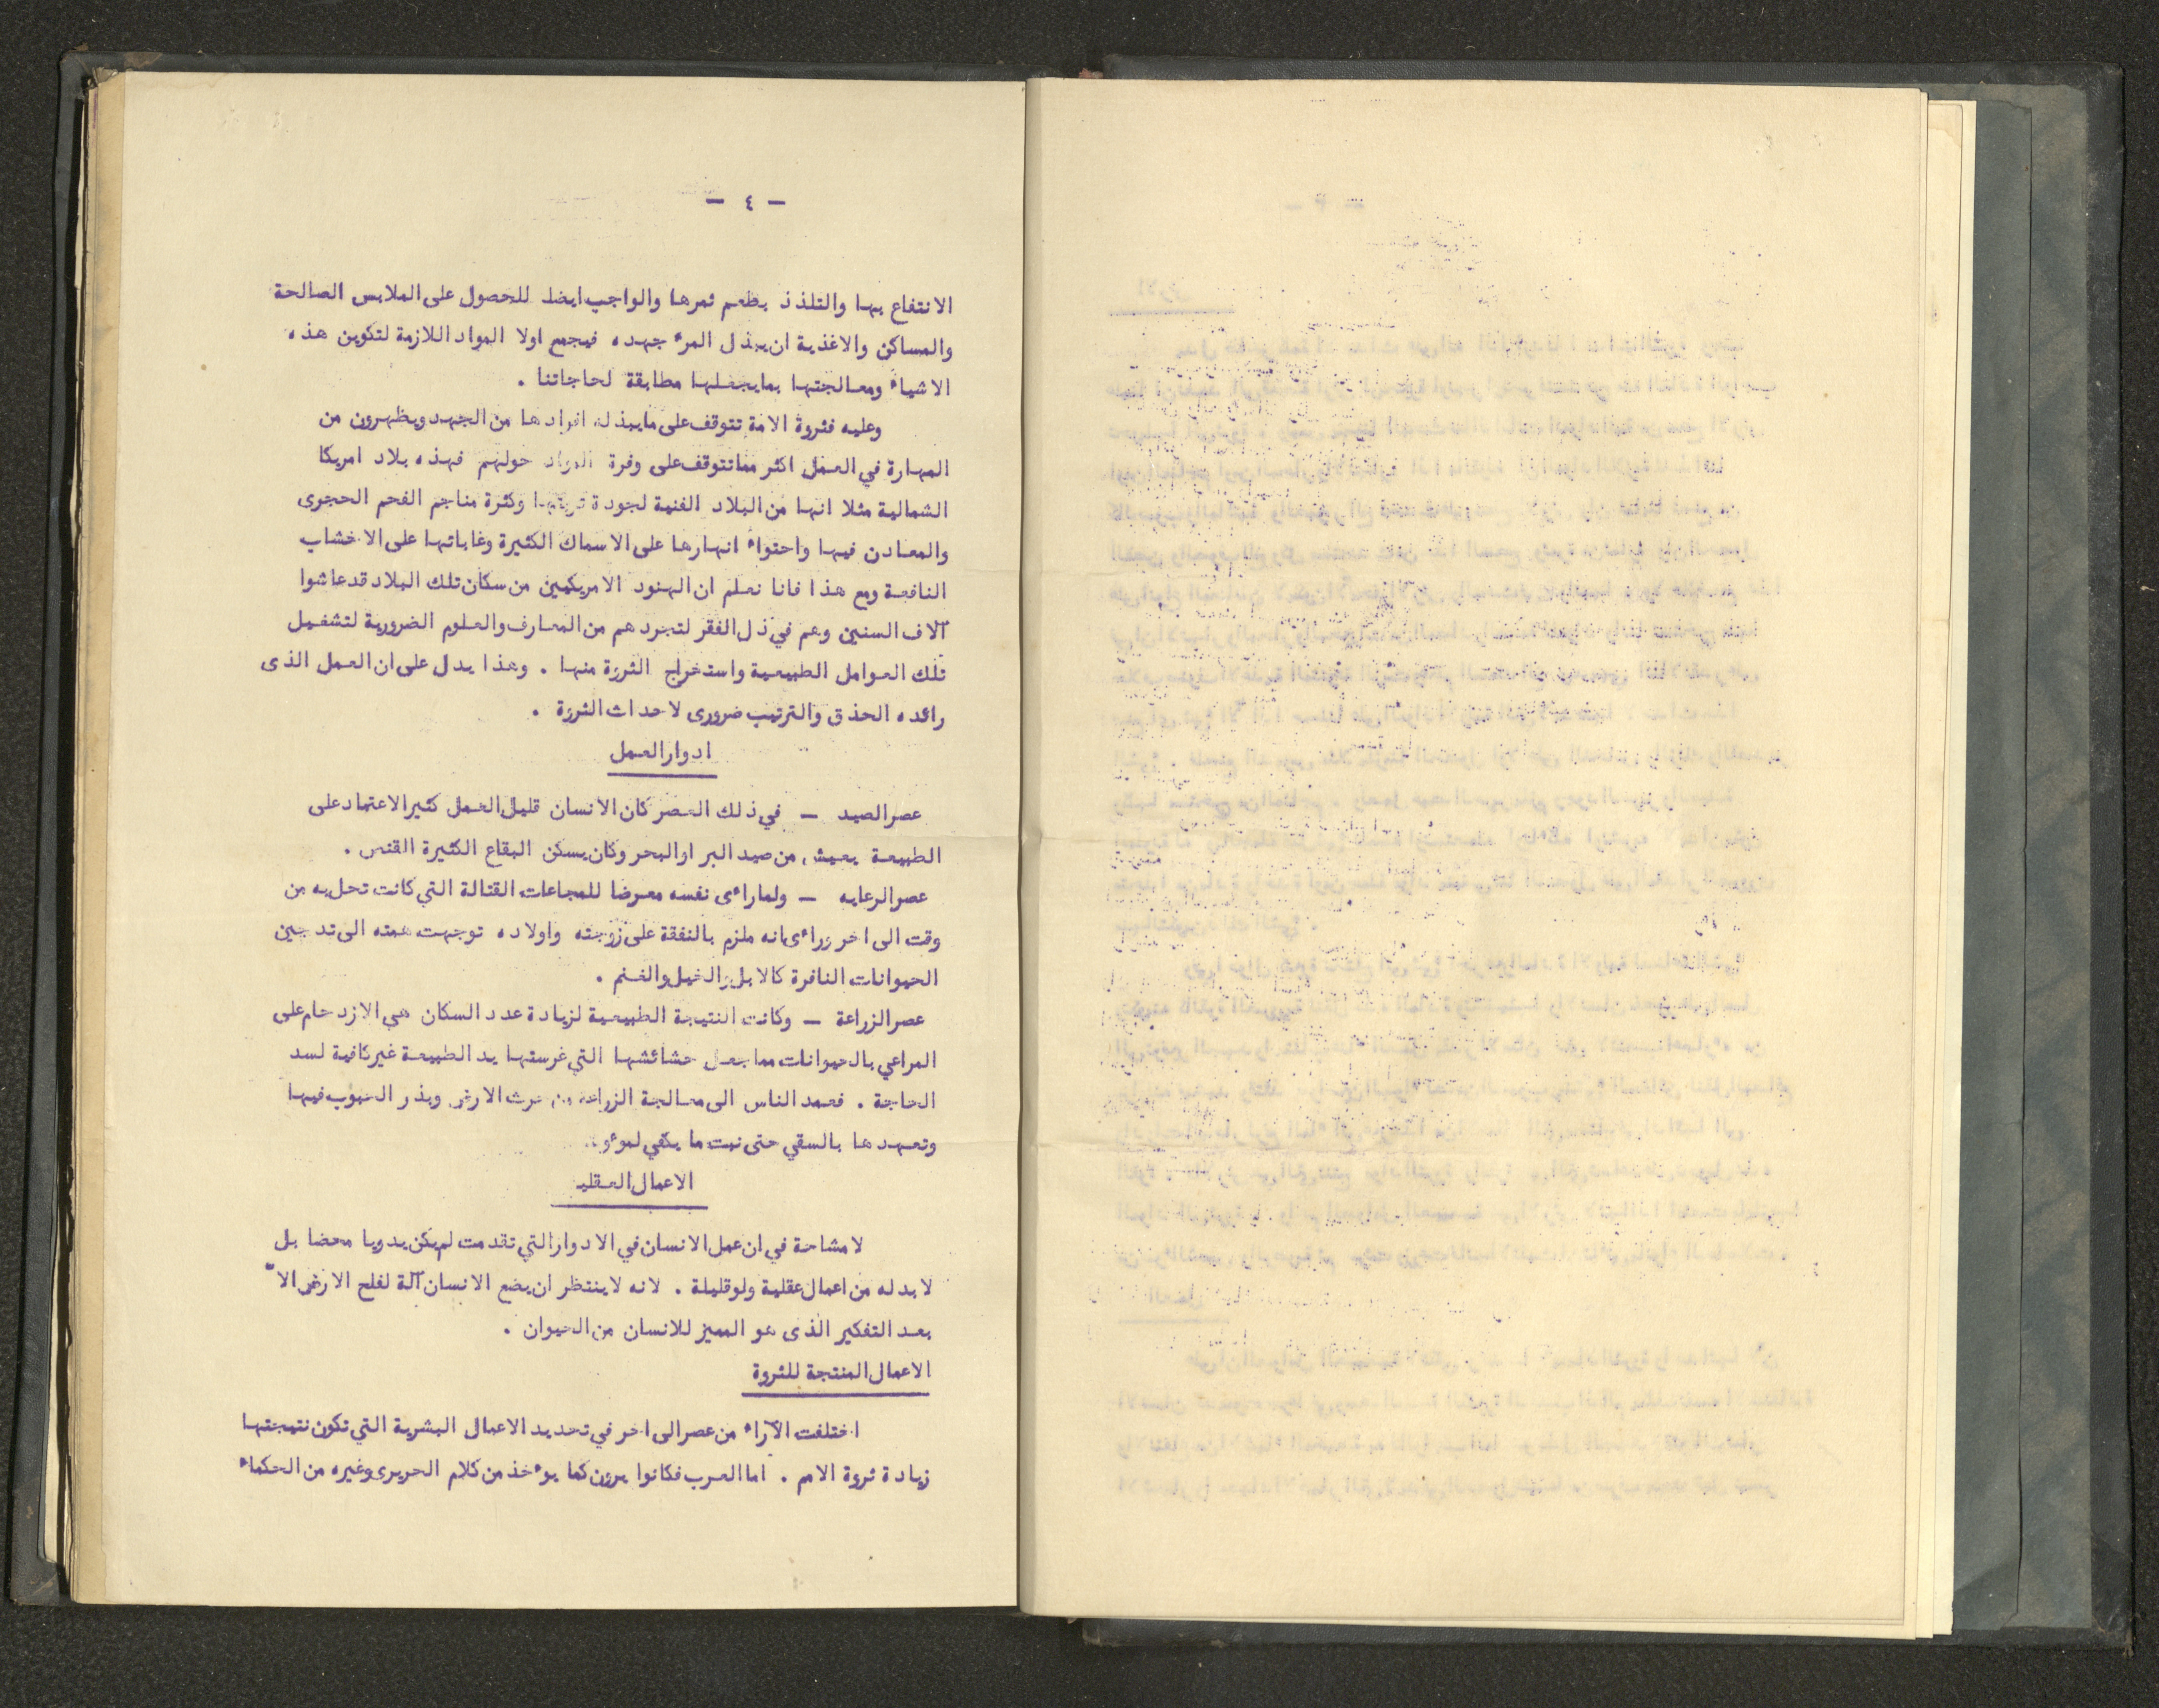 - ٤ -
الانتفاع بها والتلذذ بطعم ثمرها والواجب ايضا للحصول على الملابس الصالحة
والمساكن والاغذية ان يبذل المرء جهده فيجمع اولا المواد اللازمة لتكوين هذه
الاشياء ومعالجتها بما يجعلها مطابقة لحاجاتنا .
وعليه فثروة الامة تتوقف على ما يبذله افرادها من الجهد ويظهرون من
المهارة في العمل اكثر مما تتوقف على وفرة المواد حولهم فهذه بلاد امريكا
الشمالية مثلا انها من البلاد الغنية لجودة تربتها وكثرة مناجم الفحم الحجرى
والمعادن فيها واحتواء انهارها على الاسماك الكثيرة وغاباتها على الاخشاب
النافعة ومع هذا فانا نعلم ان الهنود الامريكيين من سكان تلك البلاد قد عاشوا
آلاف السنين وهم في ذل الفقر لتجردهم من المعارف والعلوم الضرورية لتشغيل
تلك العوامل الطبيعية واستخراج الثروة منها . وهذا يدل على ان العمل الذى
رائده الحذق والترتيب ضرورى لاحداث الثروة .
ادوار العمل
عصر الصيد - في ذلك العصر كان الانسان قليل العمل كثير الاعتماد على
الطبيعة يعيش من صيد البر او البحر وكان يسكن البقاع الكثيرة القنص .
عصر الرعايه - ولما راءى نفسه معرضا للمجاعات القتالة التي كانت تحل به من
وقت الى اخر وراءى انه ملزم بالنفقة على زوجته واولاده توجهت همته الى تدجين
الحيوانات النافرة كالابل والخيل والغنم .
عصر الزراعة - وكانت النتيجة الطبيعية لزيادة عدد السكان هي الازدحام على
المراعي بالحيوانات مما جعل حشائشها التي غرستها يد الطبيعة غير كافية لسد
الحاجة . فعمد الناس الى معالجة الزراعة من حرث الارض وبذر الحبوب فيها
وتعهدها بالسقي حتى نبت ما يكفي
الاعمال العقليه
لا مشاحة في ان عمل الانسان في الادوار التي تقدمت لم يكن يدويا محضا بل
لابد له من اعمال عقلية ولو قليلة . لانه لا ينتظر ان يضع الانسان آلة لفلح الارض الاّ
بعد التفكير الذى هو المميز للانسان من الحيوان .
الاعمال المنتجة للثروة
اختلفت الآراء من عصر الى اخر في تحديد الاعمال البشرية التي تكون نتيجتها
زيادة ثروة الامم . اما العرب فكانوا يرون كما يوءخذ من كلام الحريرى وغيره من الحكماء